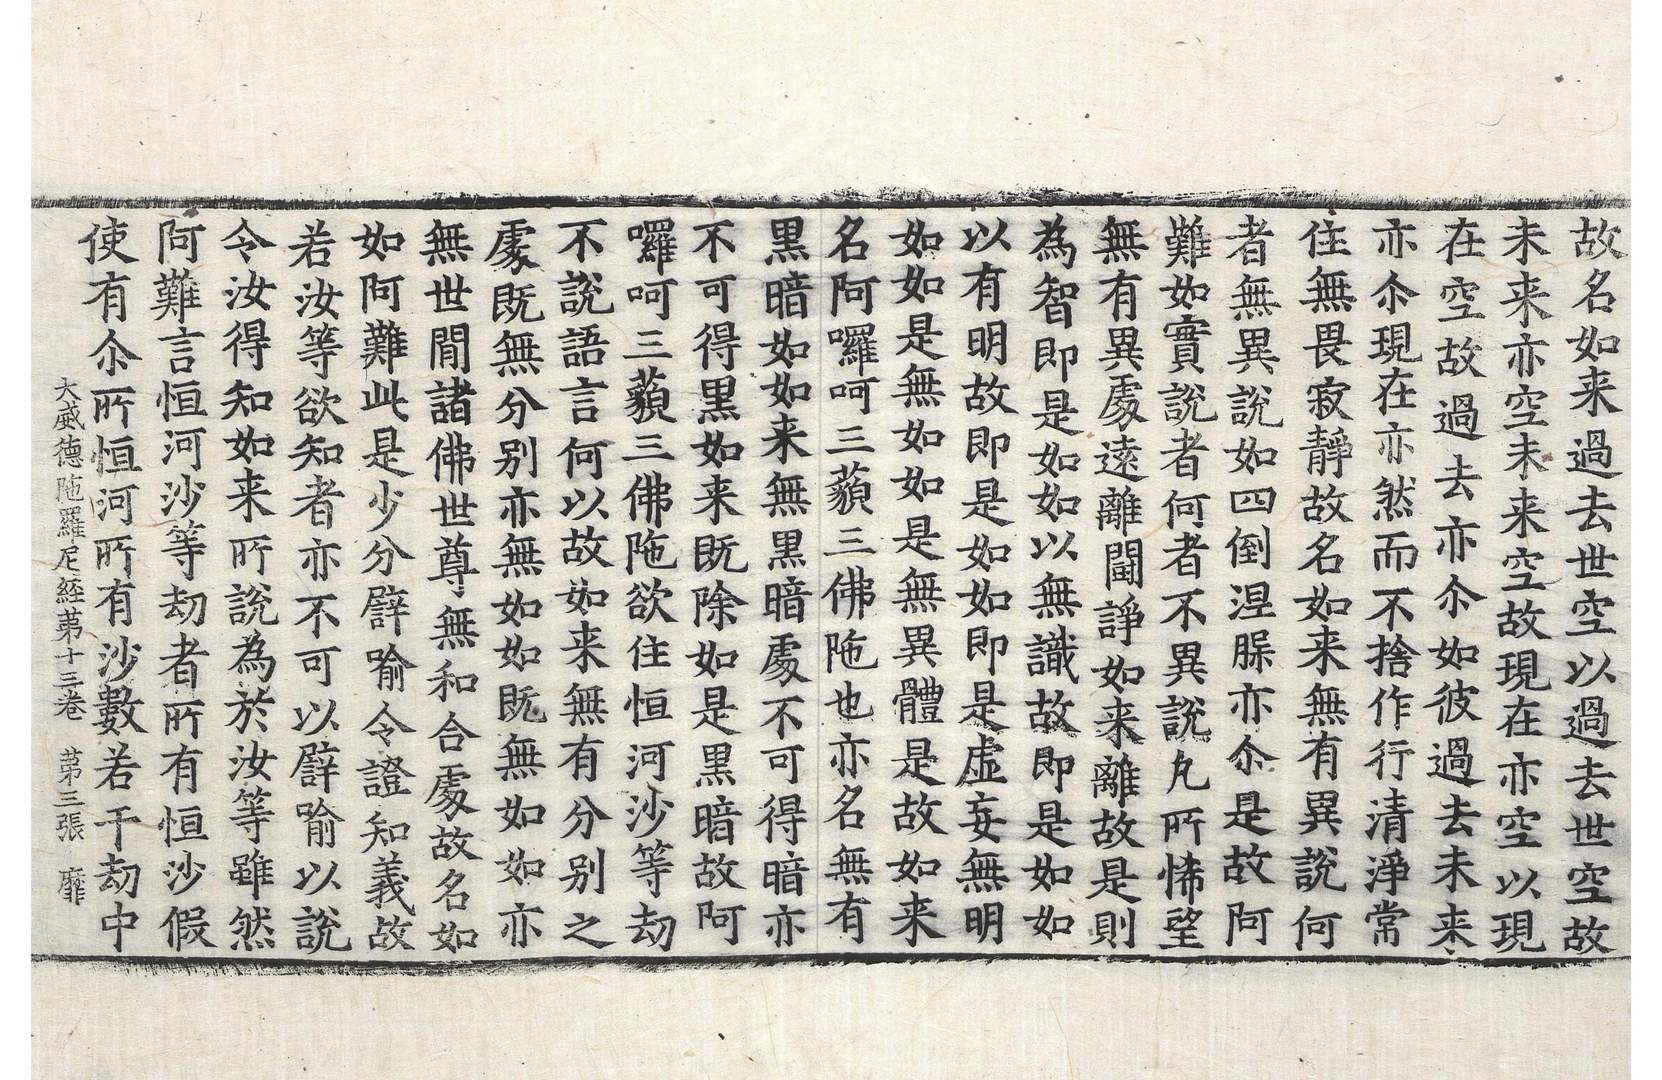 故名如来過去世空以過去世空故
未来亦空未来空故現在亦空以現
在空故過去亦尒如彼過去未来
亦尒現在亦然而不捨作行清淨常
住無畏寂靜故名如来無有異說何
者無異說如四倒涅脲亦尒是故阿
難如實說者何者不異說凡所悕望
無有異處遠離鬪諍如来離故是則
為智即是如如以無識故即是如如
以有明故即是如如即是虛妄無明
如如是無如如是無異體是故如来
名阿囉呵三藐三佛陁也亦名無有
黒暗如如来無黒暗處不可得暗亦
不可得黒如来既除如是黒暗故阿
囉呵三藐三佛陁欲住恒河沙等劫
不說語言何以故如来無有分别之
處既無分别亦無如如既無如如亦
無世間諸佛世尊無和合處故名如
如阿難此是少分譬喻令證知義故
若汝等欲知者亦不可以譬喻以說
令汝得知如来所說為於汝等雖然
阿難言恒河沙等劫者所有恒沙假
使有尒所恒河所有沙數若干劫中
大威德陁羅尼經苐十三卷 苐三張 靡